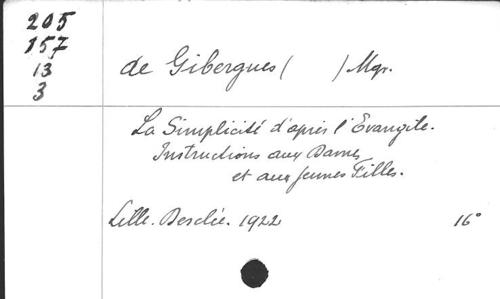 205
157
13
3
de Gibergues ( ) Mgr.
La Simplicité d'après l'Evangile.
Instructions aux Dames
et aux jeunes Filles.
Lille. Desclée. 1922 16°